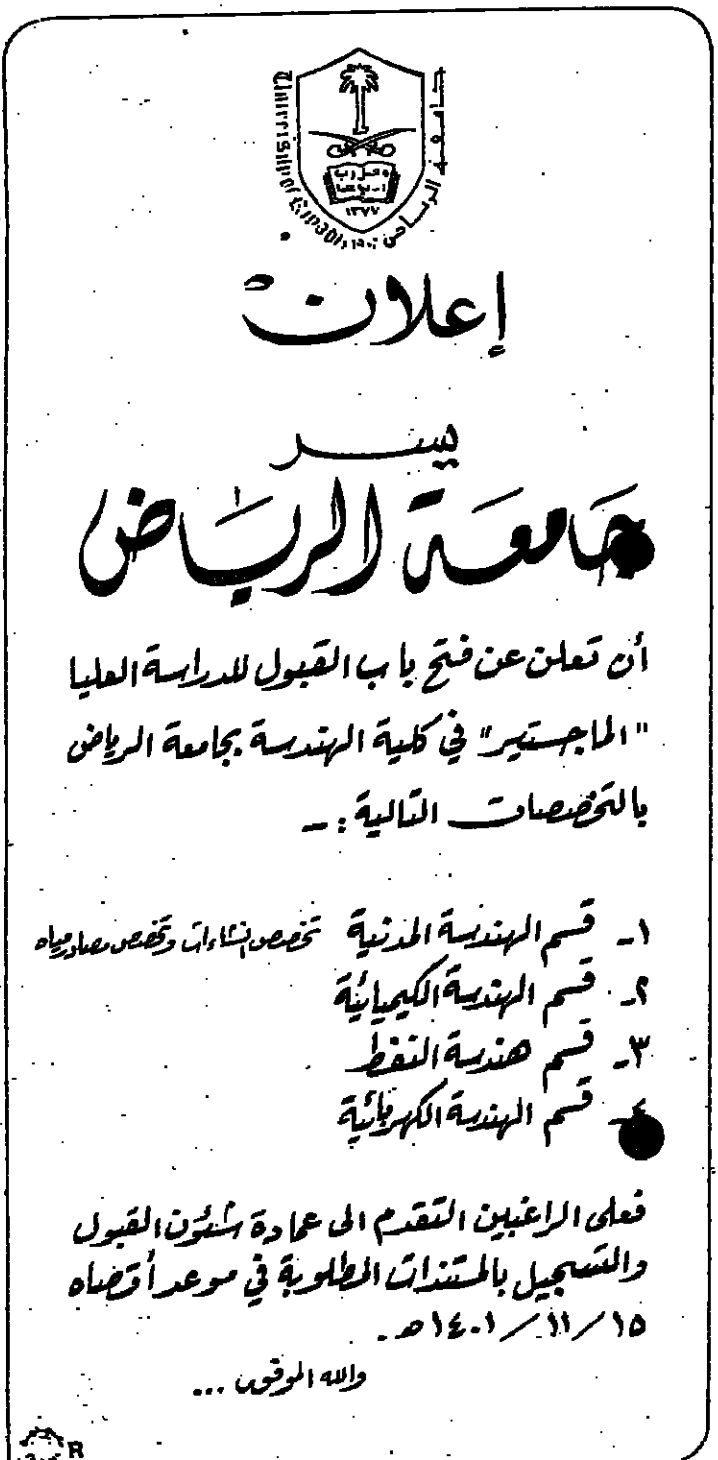 جامعة الرياض
١٣٧٧
إعلان
يسر
جامعة الرياض
أن تعلن عن فتح باب القبول للدراسة العليا
"الماجستير" في كلية الهندسة بجامعة الرياض
بالتخصصات التالية :ـ
١ـ قسم الهندسة المدنية تخصص انشاءات وتخصص مصادر مياه
٢ـ قسم الهندسة الكيميائية
٣ـ قسم هندسة النفط
٤ـ قسم الهندسة الكهربائية
فعلى الراغبين التقدم الى عمادة شئون القبول
والتسجيل بالمستندات المطلوبة في موعد أقصاه
١٥ / ١١ / ١٤٠١ هـ .
والله الموفق ...
R